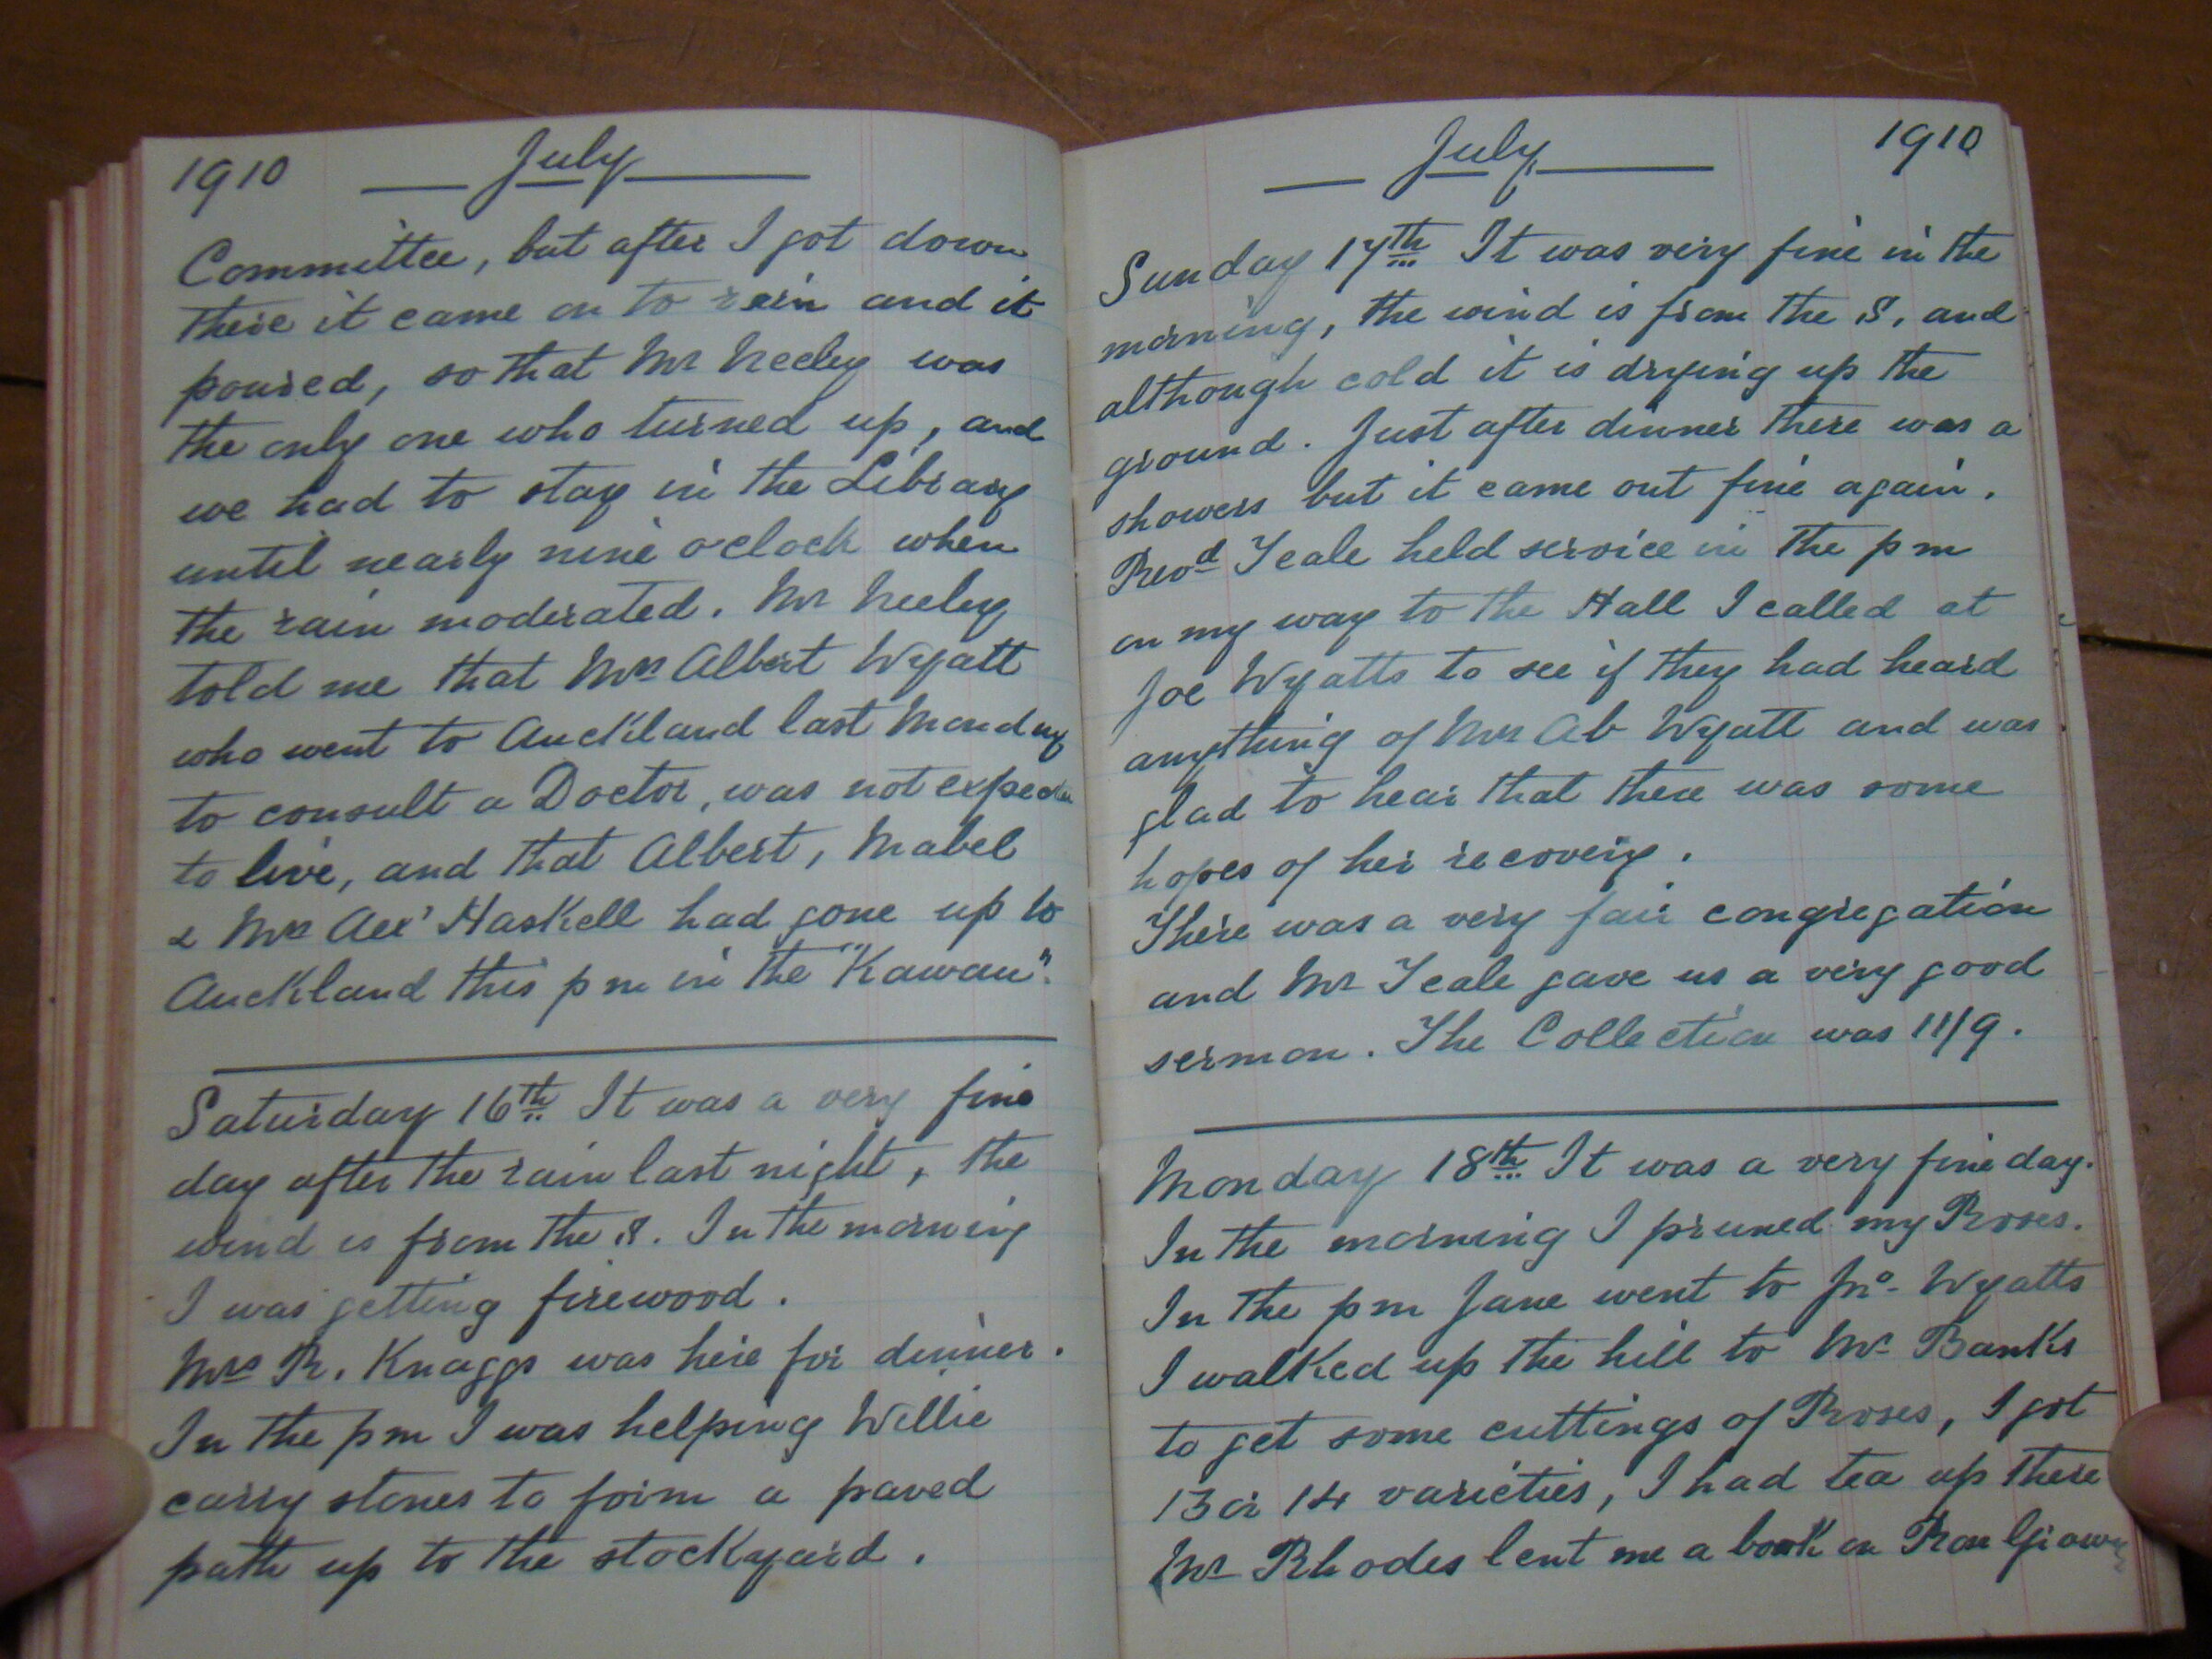 1910 July
Committee, but after I got down
there it came on to rain and it
poured, so that Mr Neeley was
the only one who turned up, and
we had to stay in the Library
until nearly nine o'clock when
the rain moderated. Mr Neeley
told me that Mrs Albert Wyatt
who went to Auckland last Monday
to consult a Doctor, was not expected
to live, and that Albert, Mabel
& Mrs Alex' Haskell had gone up to
Auckland this pm in the "Kawau".
Saturday 16th It was a very fine
day after the rain last night, the
wind is from the S. In the morning
I was getting firewood.
Mrs R. Knaggs was here for dinner.
In the pm I was helping Willie
carry stones to form a paved
path up to the stockyard.
July 1910
Sunday 17th It was very fine in the
morning, the wind is from the S, and
although cold it is drying up the
ground. Just after dinner there was a
showers but it came out fine again.
Revd Teale held service in the pm
on my way to the Hall I called at
Joe Wyatts to see if they had heard
anything of Mrs Ab Wyatt and was
glad to hear that there was some
hopes of her recovery.
There was a very fair congregation
and Mr Teale gave us a very good
sermon. The Collection was 11/9.
Monday 18th It was a very fine day.
In the morning I pruned my Roses.
In the pm Jane went to Jno. Wyatts
I walked up the hill to Mr Banks
to get some cuttings of Roses, I got
13 or 14 varieties, I had tea up there
Mr Rhodes lent me a book on Rose